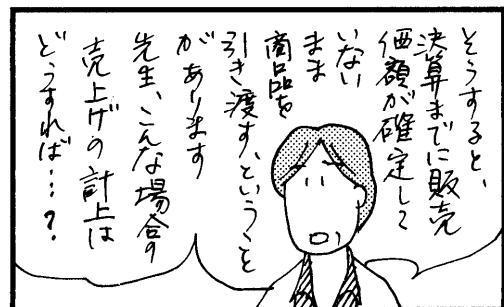 そうすると、
決算までに販売
価額が確定して
いない
まま
商品を
引き渡す、ということ
があります
先生、こんな場合の
売上げの計上は
どうすれば…？